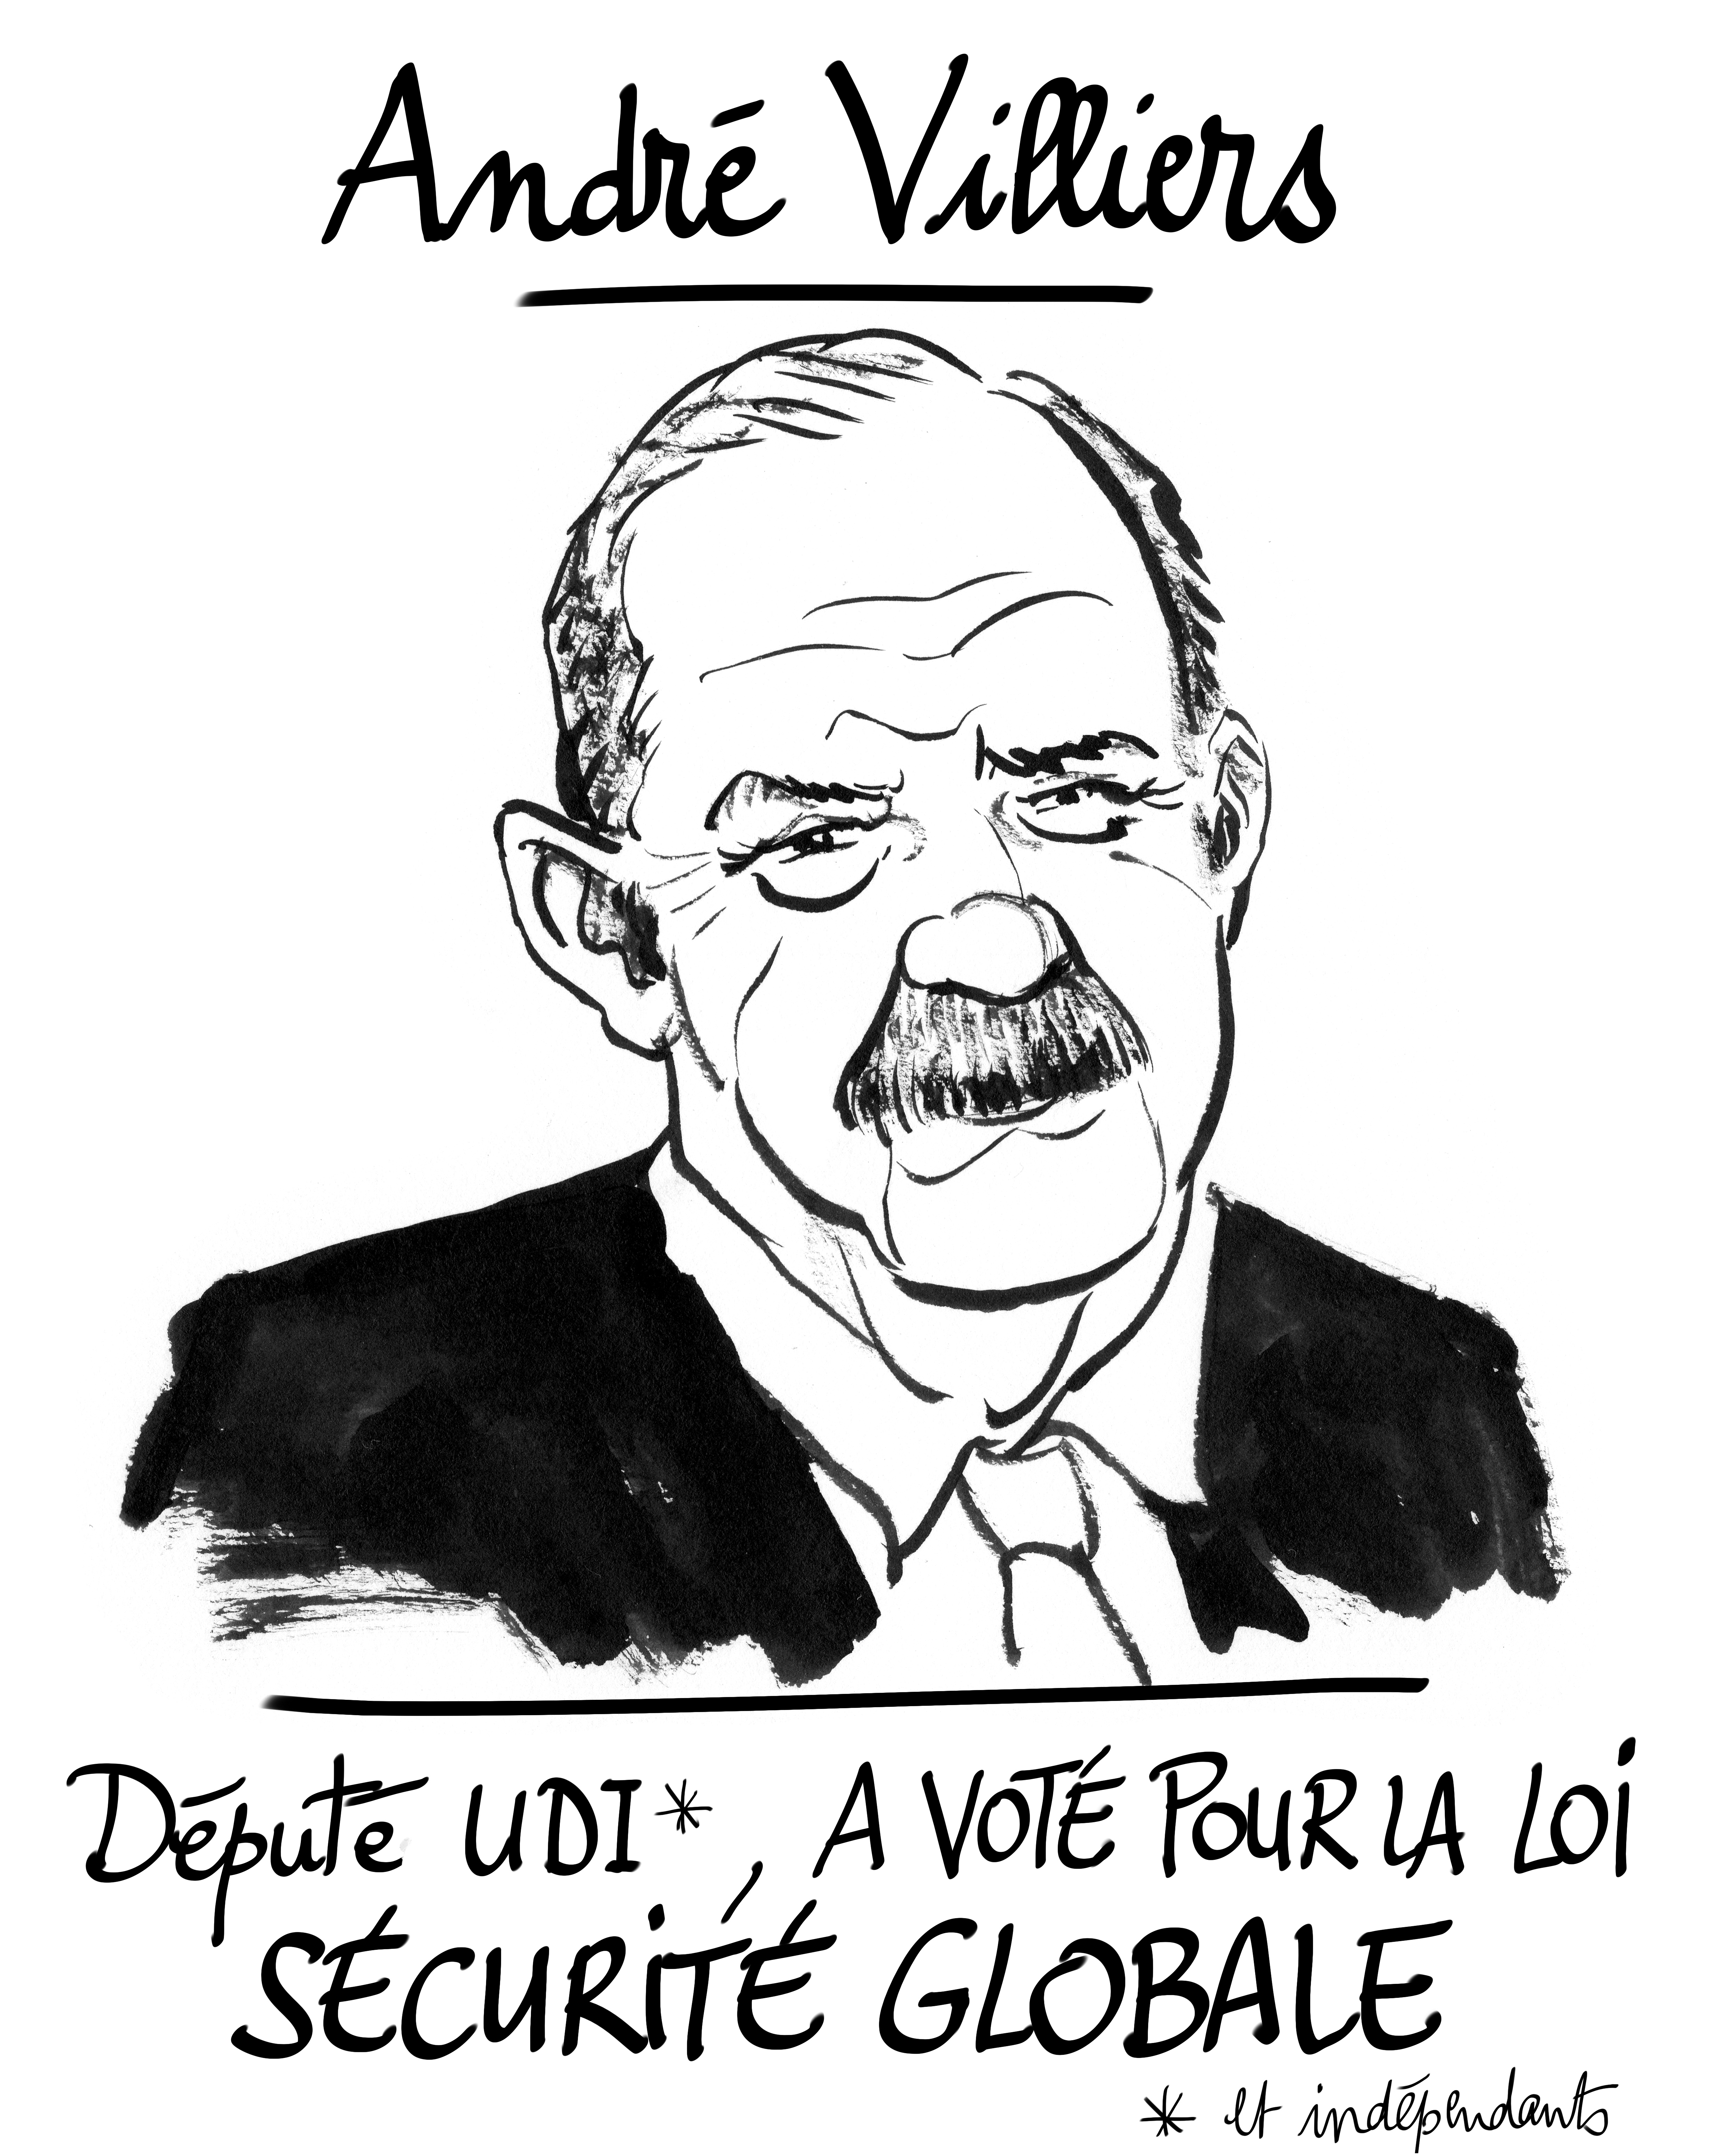 André Villiers
Député UDI*, A VOTÉ POUR LA LOi
SÉCURiTÉ GLOBALE
* et indépendants